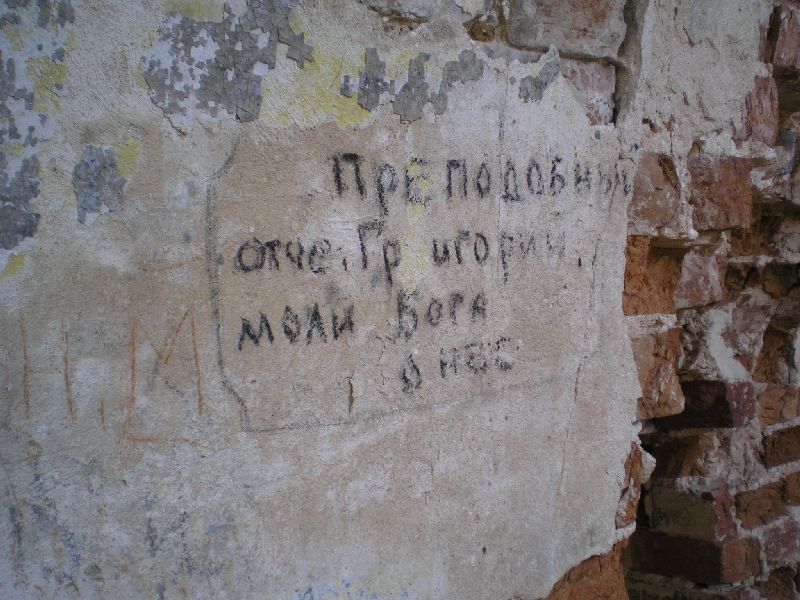 Преподобный
отче Григорий,
моли Бога
о нас